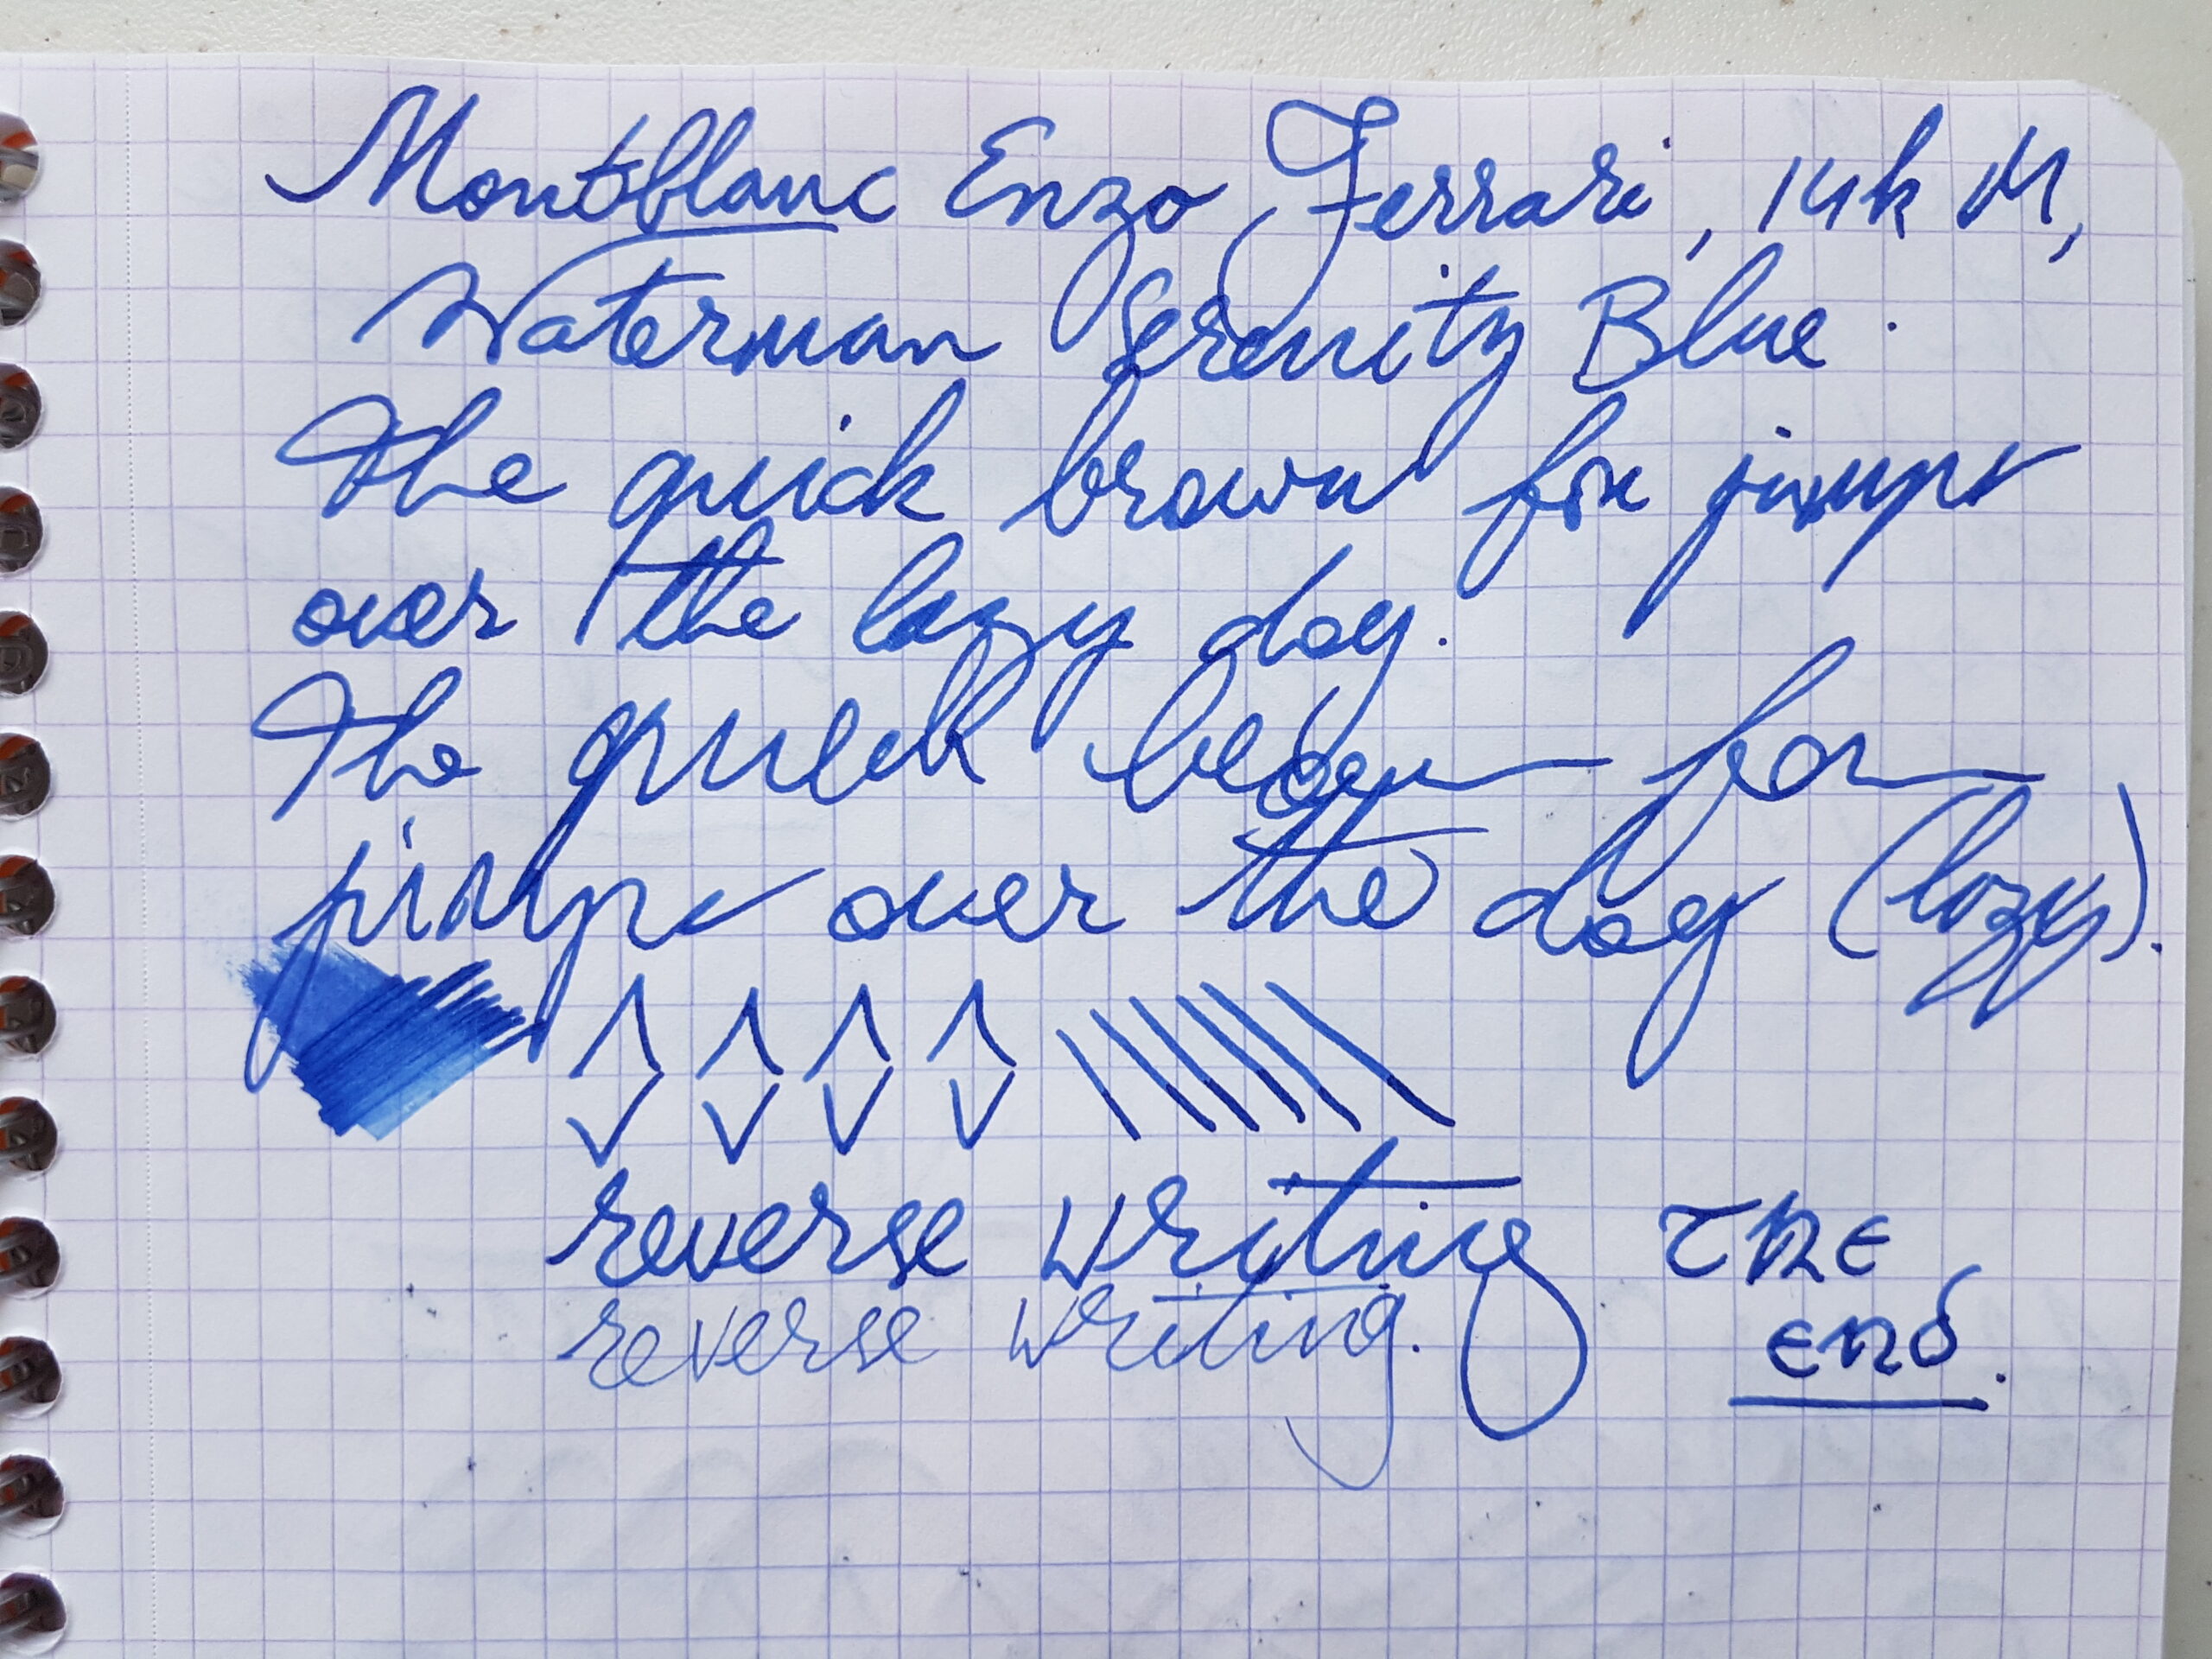 Montblanc Enzo Ferrari, 14k M,
Waterman Serenity Blue.
The quick brown fox jumps
over the lazy dog.
The quick brown fox
jumps over the dog (lazy).
reverse writing
reverse writing.
The
end.